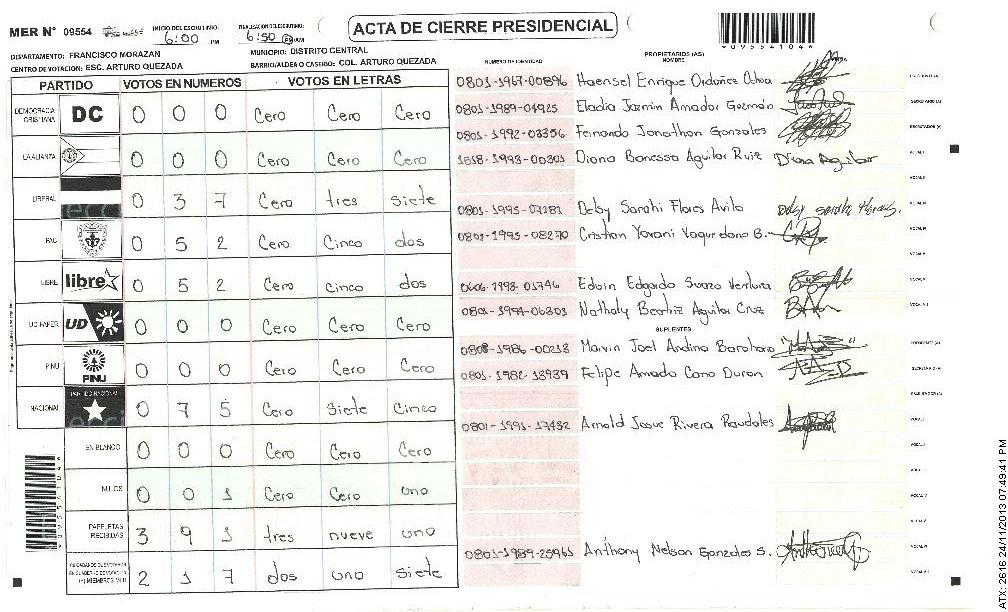 MER Nº 09554 INICIO DEL ESCRUTINIO: 6:00 PM FINALIZACION DEL ESCRUTINIO: 6:50 PM/AM ACTA DE CIERRE PRESIDENCIAL
*09554104*
DEPARTAMENTO: FRANCISCO MORAZAN MUNICIPIO: DISTRITO CENTRAL
CENTRO DE VOTACION: ESC. ARTURO QUEZADA BARRIO/ALDEA O CASERIO: COL. ARTURO QUEZADA
NUMERO DE IDENTIDAD PROPIETARIOS (AS) NOMBRE
PARTIDO VOTOS EN NUMEROS VOTOS EN LETRAS
DEMOCRACIA CRISTIANA DC 0 0 0 Cero Cero Cero
LA ALIANZA 0 0 0 Cero Cero Cero
LIBERAL 0 3 7 Cero tres siete
PAC 0 5 2 Cero Cinco dos
LIBRE libre 0 5 2 Cero cinco dos
UD-FAPER UD 0 0 0 Cero Cero Cero
PINU PINU 0 0 0 Cero Cero Cero
NACIONAL PARTIDO NACIONAL 0 7 5 Cero Siete Cinco
EN BLANCO 0 0 0 Cero Cero Cero
NULOS 0 0 1 Cero Cero uno
PAPELETAS RECIBIDAS 3 9 1 tres nueve uno
2 1 7 dos uno siete
0801-1967-00896 Haensel Enrique Ordoñez Ochoa
0801-1989-04925 Eladia Jazmin Amador Guzmán
0801-1992-03356 Fernando Jonathan Gonzales
1518-1993-00301 Diana Banessa Aguilar Ruiz Diana Aguilar
0801-1995-07281 Delsy Sarahi Flores Avila
0801-1995-08270 Cristian Yovani Vaquedano B.
0606-1993-01746 Edwin Edgardo Suazo Ventura
0801-1994-06303 Nathaly Beatriz Aguilar Cruz
SUPLENTES
0808-1986-00213 Marvin Joel Andino Barahona
0801-1982-13939 Felipe Amado Cano Duron
0801-1991-17432 Arnold Josue Rivera Raudales
0801-1989-25961 Anthony Nelson Gonzales S.
ATX: 2616 24/11/2013 07:49:41 PM